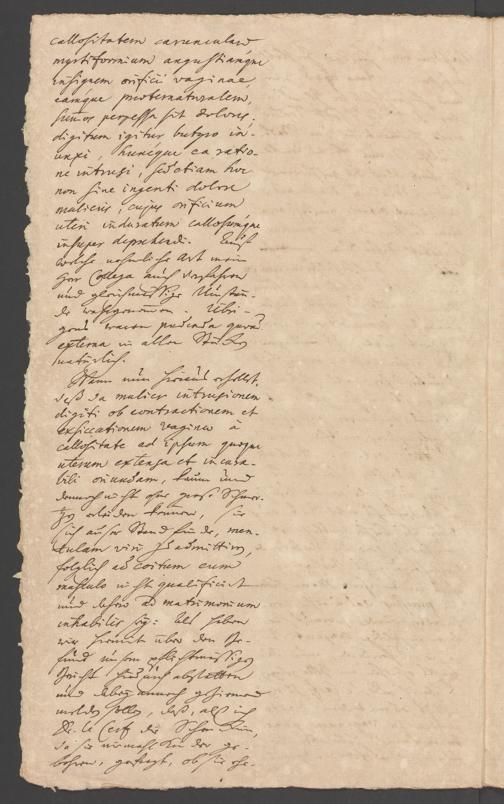 callositatem caruncularum
myrtiformium angustiamque
insignem orificii vaginae,
eamque praeternaturalem,
perpessa sit dolores;
digitum igitur butyro in-
unxi, huncque ea ratio-
ne intrusi, sed etiam hoc
non sine ingenti dolore
mulieris, cujus orificium
uteri induratum callosumque
insuper deprehendi. Auf
welche nehmliche Art mein
Herr Collega auch verfahren
und gleichmässige Umstän-
de wahrgenommen. Übri-
gens waren pudenda quoad
externa in allen Stücken
natürlich.
Wann nun hieraus erhellet,
daß da mulier intrusionem
digiti ob contractionem et
exsiccationem vaginae à
callositate ad ipsum quoque
uterum extensa et incura-
bili oriundam, kaum und
dennoch nicht ohne grosse Schmer-
tzen erleiden können, sie
sich ausser Stand finde, men-
tulam viri zu admittiren,
folglich ad coitum cum
masculo nicht qualificirt
und dahero ad matrimonium
inhabilis sey: als haben
wir hiemit über den Be-
fund unsern pflichtmässigen
Bericht abstatten
und dabey annoch geziemend
melden sollen, daß, als ich
D. die
da sie niemahls Kinder ge-
bohren, gefragt, ob sie ehe-